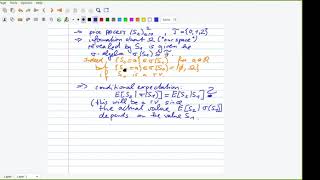 → price process (Sₙ)²ₙ₌₀, J = {0,1,2}
→ information about Ω ("our space")
revealed by Sₙ is given the
σ-algebra σ(Sₙ)
Indeed {Sₙ=a} ∈ σ(Sₙ) for a∈
but {S₀=a} ∈ σ(S₀) = {∅, Ω}
if S₀ is a r.v.
→ conditional expectation:
E[S₂ | σ(S₁)] = E[S₂|S₁] ?
(this will be a r.v. since
the actual value E[S₂ | σ(S₁)]
depends on the value S₁.